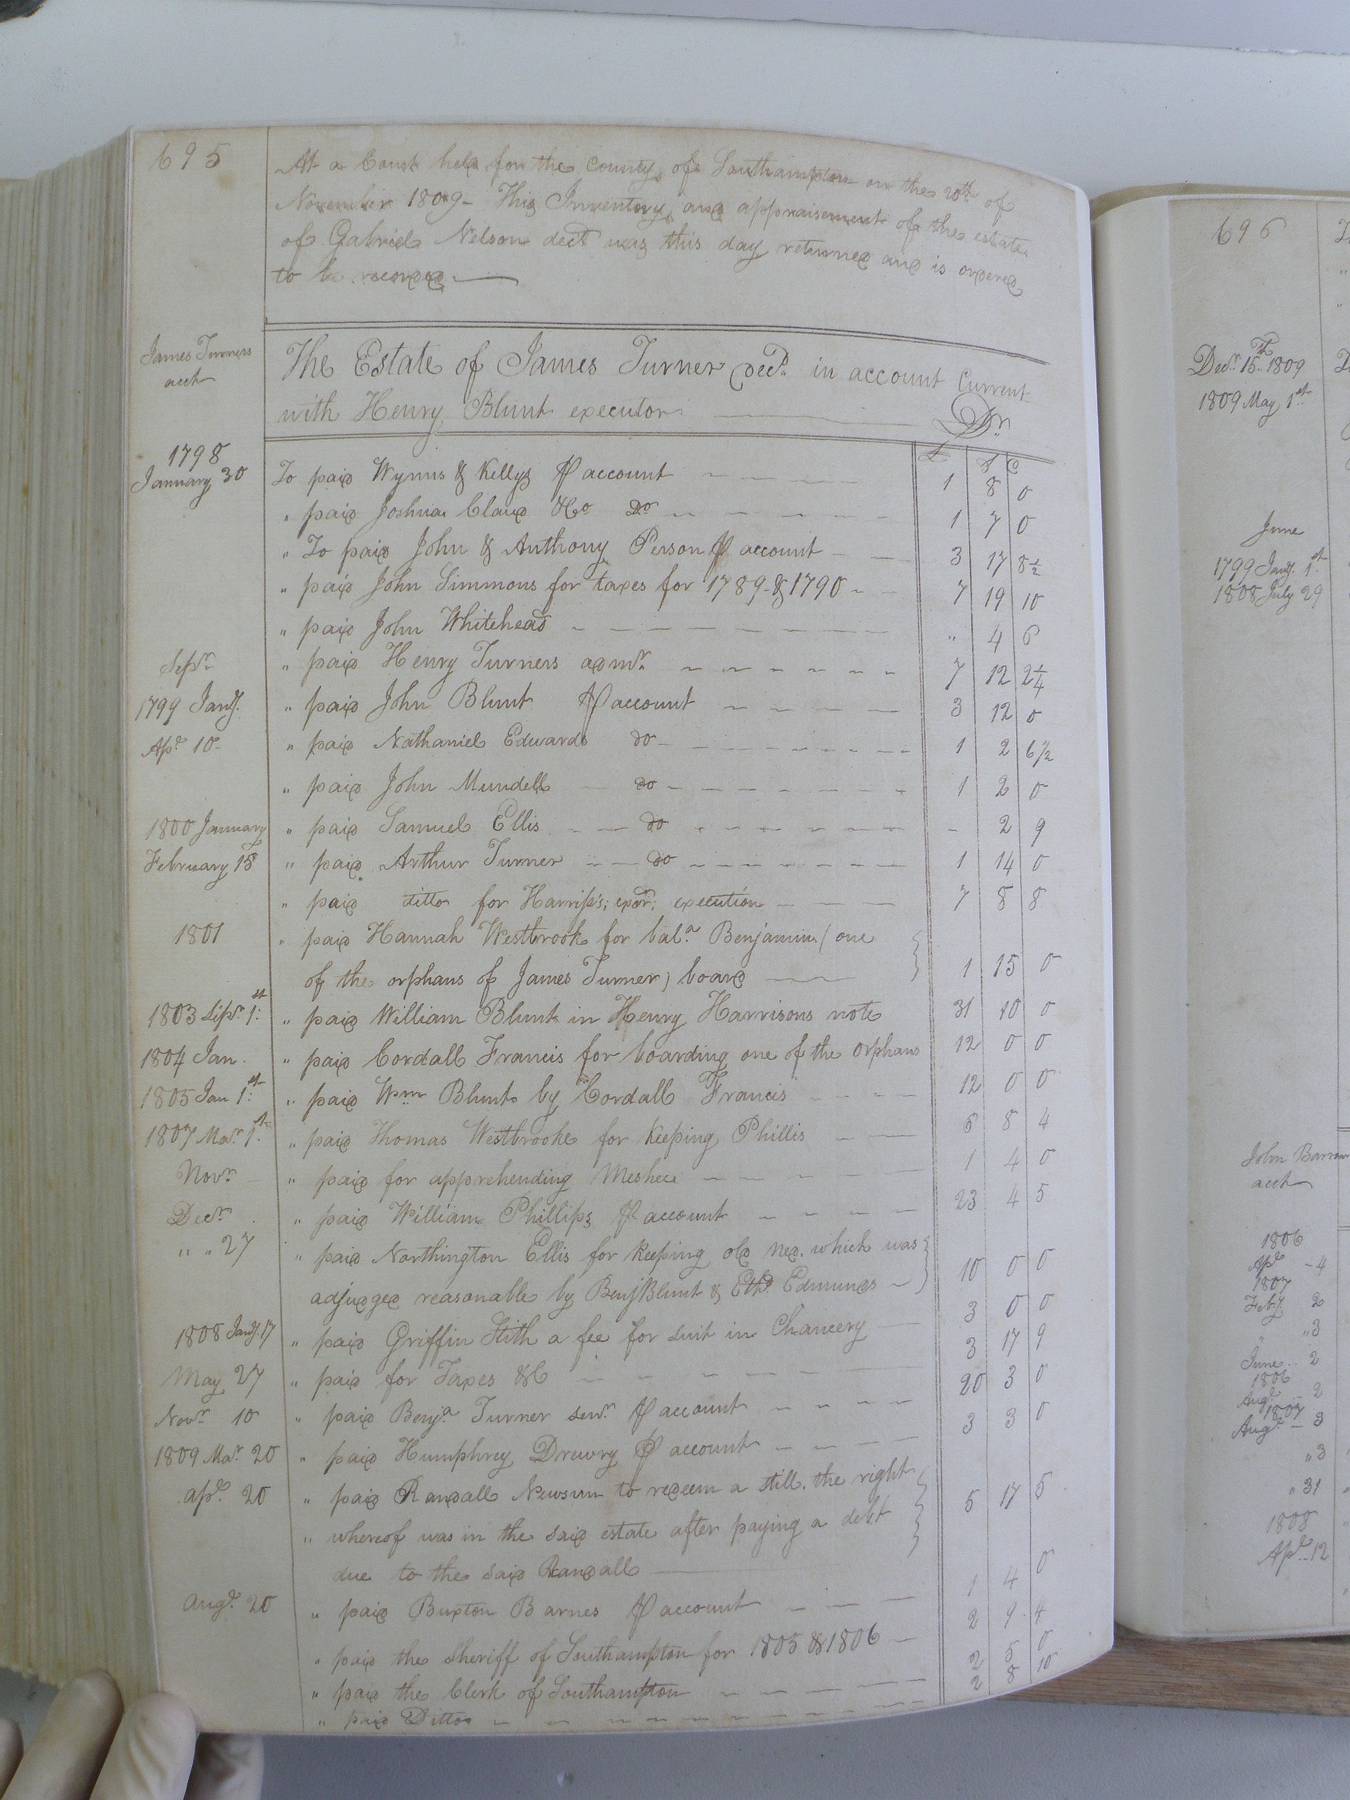 695
At a Court held for the County of Southampton on the 20th of
November 1809 - This Inventory and appraisement of the estate
of Gabriel Nelson decd was this day returned and is ordered
to be recorded
James Turners
acct
The Estate of James Turner decd. in account Current
with Henry Blunt executor Dr
£ S D
1798
January 30 To paid Wynns & Kellys ⅌ account 1 8 0
" paid Joshua Claud &Co Do 1 7 0
" To paid John & Anthony Person ⅌ account 3 17 8½
" paid John Simmons for taxes for 1789 & 1790 7 19 10
" paid John Whitehead " 4 6
Sepr " paid Henry Turners admr. 7 12 2¼
1799 Jany. " paid John Blunt ⅌ account 3 12 0
Apl 10 " paid Nathaniel Edwards do 1 2 6½
" paid John Mundell do 1 2 0
1800 January " paid Samuel Ellis do - 2 9
February 15 " paid Arthur Turner do 1 14 0
" paid ditto for Harriss's; exor; execution 7 8 8
1801 " paid Hannah Westbrook for bala. Benjamin (one
of the orphans of James Turner) board 1 15 0
1803 Sepr. 1st " paid William Blunt in Henry Harrisons note 31 10 0
1804 Jan. " paid Cordall Francis for boarding one of the orphans 12 0 0
1805 Jan 1st " paid Wm Blunt by Cordall Francis 12 0 0
1807 Mar. 1st " paid Thomas Westbrooke for keeping Phillis 5 8 4
Novr " paid for apprehending 1 4 0
Decr " paid William Phillips ⅌ account 23 4 5
" " 27 " paid Northington Ellis for keeping old Ned. which was
adjudged reasonable by Benj Blunt & Ethd. Edmunds 10 0 0
1808 Jany. 17 " paid Griffin Stith a fee for suit in Chancery 3 0 0
May 27 " paid for Taxes &C 3 17 9
Novr 10 " paid Benja Turner senr. ⅌ account 20 3 0
1809 Mar 20 " paid Humphrey Drewry ⅌ account 3 3 0
apl. 20 " paid Randall Newsum to redeem a still, the right
" whereof was in the said estate after paying a debt 5 17 5
due to the said Randall
augt. 20 " paid Buxton Barnes ⅌ account 1 4 0
" paid the Sheriff of Southampton for 1805 & 1806 2 9 4
" paid the Clerk of Southampton 2 5 0
" paid Ditto 2 8 10
696
Decr. 15th 1809
1809 May 1st
June
1799 Jany. 1st
1808 July 29
John Barrow
acct
1806
Apl - 4
1807
Feby. 2
" " 3
June - 2
1806
Augt - 2
1807
Augt - 3
" 3
" 31
1808
Apl - 12